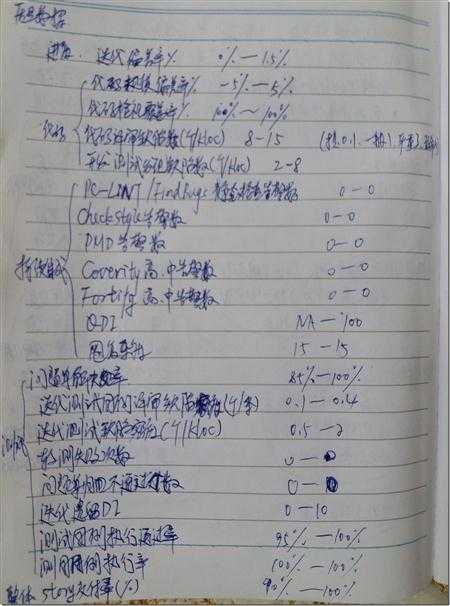 质量数据
进度 迭代偏差率% 0%—1.5%
代码规模偏差率% -5%—5%
代码检视覆盖率% 100%~100%
代码 代码评审缺陷数(个/kloc) 8-15
开发测试发现缺陷数(个/kloc) 2-8
PC-LINT/FindBugs 告警数 0-0
Checkstyle告警数 0-0
PMD告警数 0-0
持续集成 Coverity高、中告警数 0-0
Fortify高、中告警数 0-0
QDI NA—100
圈复杂度 15-15
问题单解决率 85%-100%
迭代测试用例评审缺陷密度(个/条) 0.1-0.4
测试 迭代测试缺陷密度(个/kloc) 0.5-2
转测失败次数 0-0
问题单回归不通过次数 0-0
迭代遗留DI 0-10
测试用例执行通过率 95%-100%
测试用例执行率 100%-100%
整体 story交付率(%) 90%-100%